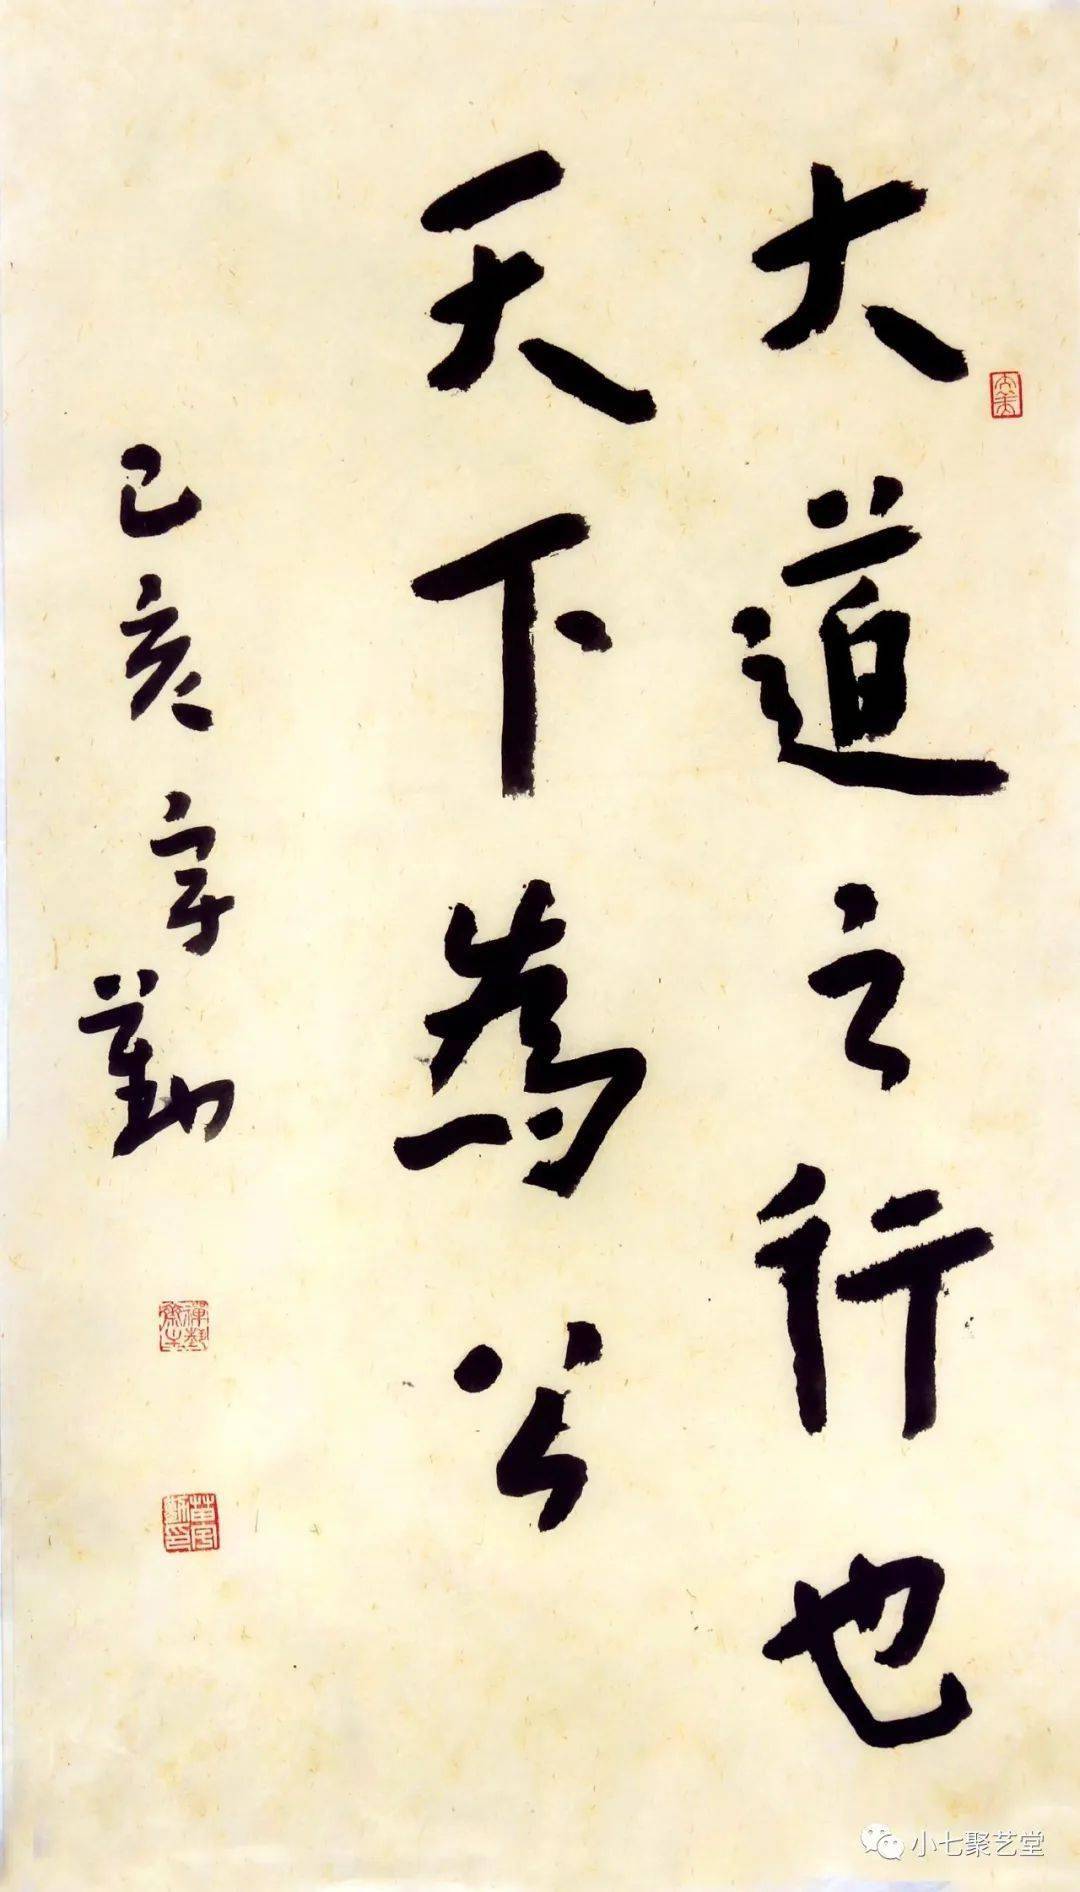 大道之行也
天下為公
己亥 勤
小七聚艺堂